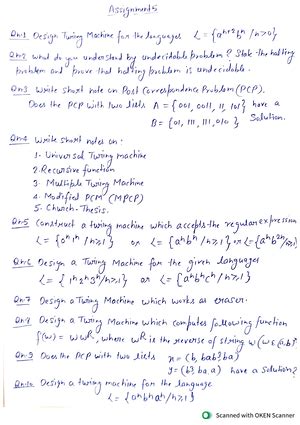 Assignment 5
Qn.1. Design Turing Machine for the languages L = {aⁿ⁺²bⁿ / n>0}
Qn.2 what do you understand by undecidable problem? State the halting
problem and prove that halting problem is undecidable.
Qn.3 Write short note on Post Correspondence Problem (PCP).
Does the PCP with two lists A = {001, 0011, 11, 101} have a
B = {01, 111, 111, 010} Solution.
Qn.4 Write short notes on:
1. Universal Turing machine
2. Recursive function
3. Multiple Turing Machine
4. Modified PCM (MPCP)
5. Church-Thesis.
Qn.5 Construct a turing machine which accepts the regular expression
L = {0ⁿ1ⁿ / n≥1} or L = {aⁿbⁿ / n≥1} or L = {aⁿb²ⁿ / n≥1}
Qn.6 Design a Turing Machine for the given languages.
L = {1ⁿ2ⁿ3ⁿ / n≥1} or L = {aⁿbⁿcⁿ / n≥1}
Qn.7 Design a Turing Machine which works as eraser.
Qn.8 Design a Turing Machine which computes following function
f(w) = wwR, where wR is the reverse of string w (w ∈ {a,b}*
Qn.9 Does the PCP with two lists x = (b, bab³, ba)
y = (b³, ba, a) have a Solution?
Qn.10 Design a turing machine for the language
L = {aⁿbⁿaⁿ / n≥1}
Scanned with OKEN Scanner